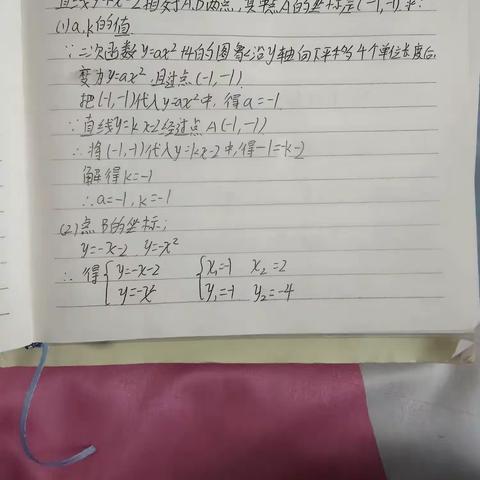 直线y=kx-2相交于A,B两点,其中点A的坐标是(-1,-1).求:
(1)a,k的值.
∵二次函数y=ax²+4的图象沿y轴向下平移4个单位长度后,
变为y=ax²,且过点(-1,-1)
把(-1,-1)代入y=ax²中,得a=-1
∵直线y=kx-2经过点A(-1,-1)
∴将(-1,-1)代入y=kx-2中,得-1=-k-2
解得k=-1
∴a=-1,k=-1
(2)点B的坐标;
y=-x-2 y=-x²
∴得{y=-x-2 {x₁=-1 x₂=2
y=-x² y₁=-1 y₂=-4